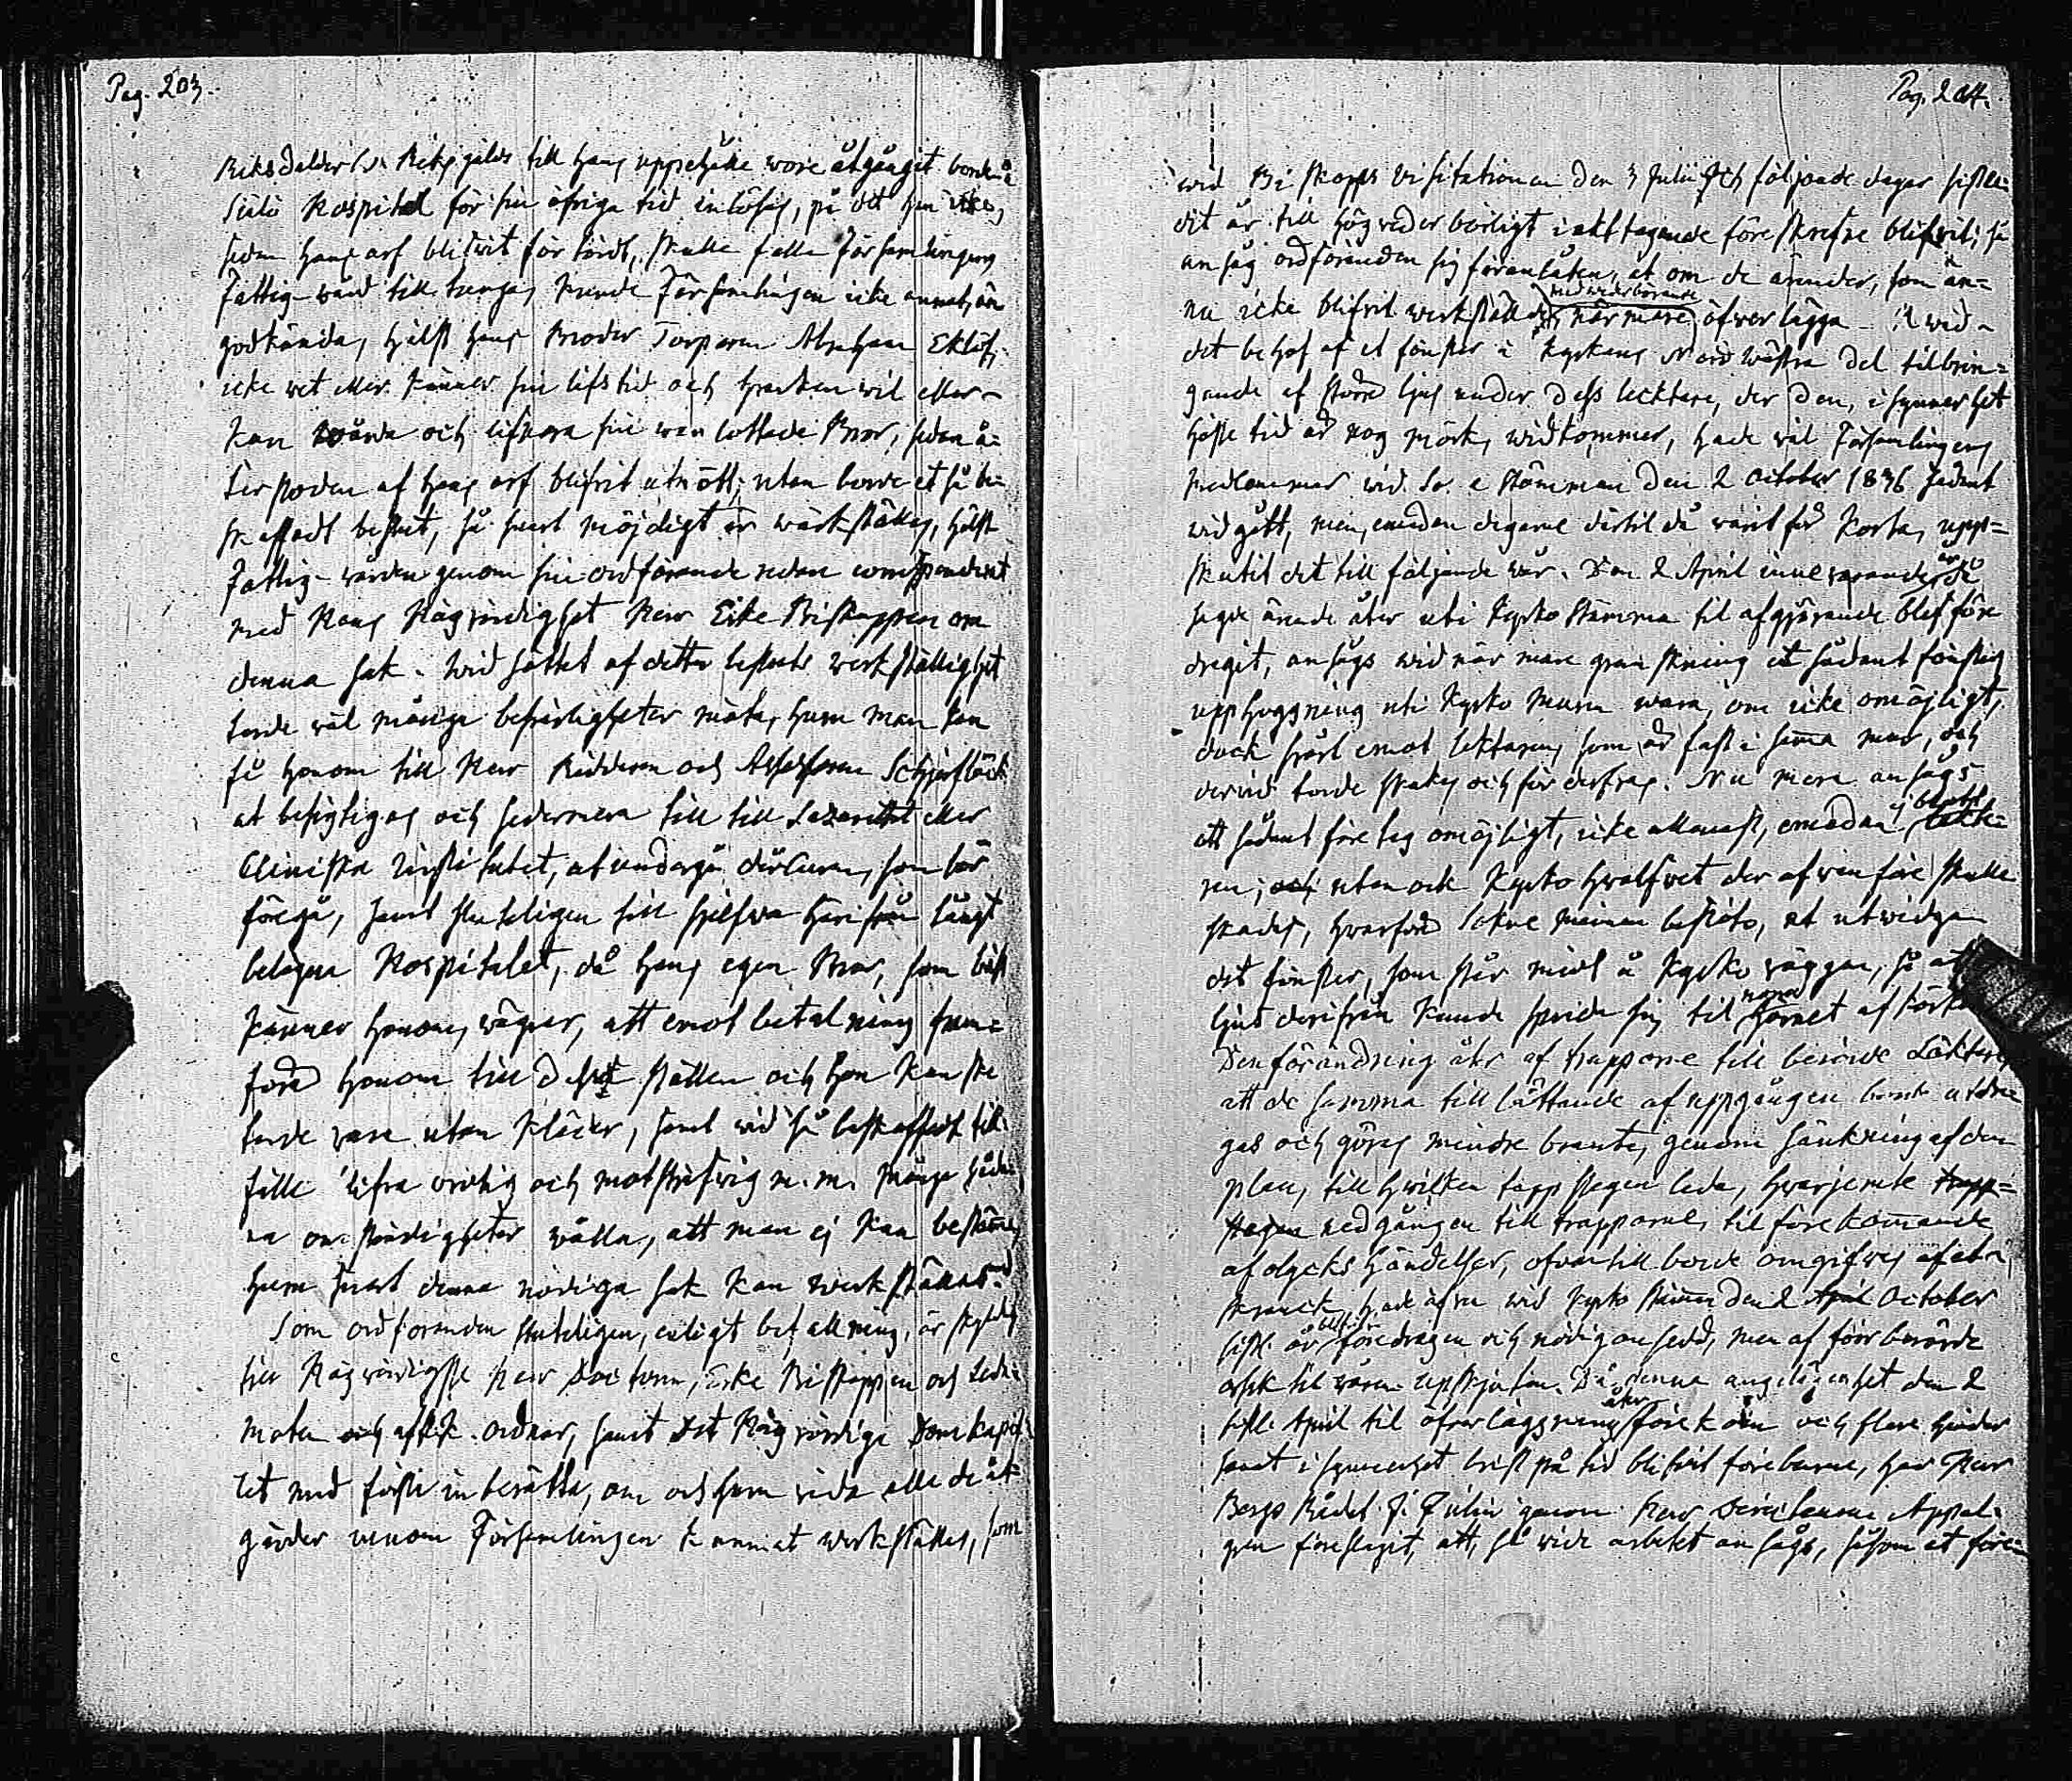 Pag. 203.
Riksdaler Sv. Riksgälds till hans uppehälle wore åtgångit borde å
Själö Hospital för sin öfriga tid inlösas, på det han icke,
sedan hans arf blifwit förtärdt, skulle falla Församlingens
fattig-wård till tunga, kunde Församlingen icke annat än
godkända, hälst hans Broder Torparen Abraham Eklöf,
icke vet eller känner sin lifstid och hwarken wil eller
kan wårda och lifnära sin wan lottade Bror, sedan å-
terstoden af hans arf blifvit utnött; utan borde et så be-
skaffadt beslut, så snart möjeligt är wärkställas, hälst
Fattig-vården genom sin ordförande redan correspenderat
med Hans Högvördighet Herr Erke Biskoppen om
denna sak. Wid sättet af detta besluts werkställighet
torde wäl många beswärligheter möta, huru man kan
få honom till Herr Riddaren och Assessoren
at besigtigas och sedermera till till Lazarettet eller
Cliniska Institutet, at undergå där Curen, som bör
föregå, samt sluteligen till sjelfwa härifrån långt
belägna Hospitalet, då hans egen Bror, som bäst
känner honom, vägrar, att emot betalning fram-
föra honom till dessa ställen och han kanske
torde vara utan kläder, samt wid så beskaffadt til-
fälle lifra orolig och motsträfwig m.m. många såda-
na omständigheter wålla, att man ej kan bestämma,
huru snart denna nödiga sak kan werkställas.
Som ordföranden sluteligen, enligt befallning, är skyldig
till Högvördigste Herr Doctorn, Erke Biskoppen och Leda-
moten och af K.K. ordnar, samt Det Högvördiga Domkapit-
let med första inberätta, om och huru vida alla de åt-
gärder inom Församlingen hunnit werkställas, som
Pag. 204.
wid Biskops Visitationen den 3 Julii och följande dagar sistle-
dit år till högvederbörligt i akttagande föreskrefne blifvit; så
ansåg ordföranden sig föranlåten, at om de ärender, som än-
nu icke blifvit werkstälde, med wederbörande närmare öfverlägga. Wid
det behof af et fönster i Kyrkans Nordwästra del tilbrin-
gande af större ljus under dess lecktare, der den, i synnerhet
höste tid är nog mörk, widkommer, hade wäl Församlingens
Medlemmar wid Sockne stämman den 2 October 1836 sådant
widgått, men, emedan dagarne därtil då varit för korta, upp-
skutit det till följande vår. Den 2 April innevarande år då
sagde ärende åter uti Kyrkostämma til afgjörande blef före
dragit, ansågs wid närmare granskning et sådant fönsters
upphuggning uti Kyrko Muren wara, om icke omöjligt,
dock svårt emot lektaren, som är fast i samma mur, och
dervid torde skakas och förderfvas. Nu mera ansågs
ett sådant företag omöjligt, icke allenast, emedan läkta-
ren; och utan ock Kyrko hwalfvet der ofwanföre skulle
skadas, hwarföre Sokne männen beslöto, at utwidga
det fönster, som står midt å Kyrko väggen, så att
ljus derifrån kunde sprida sig til norra hörnet af
Den förändring åter af trapporne till berörde Läktare,
att de samma till lättande af uppgången borde utdra-
gas och göras mindre branta, genom sänkning af den
plan, till hwilken trappstegen leda, hwarjemte trapp-
stegen nedgången till trapporne, til förekommande
af olycks händelser, ofvantill borde omgifvas af et
skrank, hade äfven wid Kyrkostämman den 2 April October
sistl. år blifvit föredragen och nödig ansedd, men af förr berörde
orsak til våren upskjuten. Då denna angelägenhet den 2
sistl. April til öfverläggning åter förekom och flere hinder
samt i synnerhet brist på tid blifvit föreburne, har Herr
Bergs Rådet J. Julin genom Herr Directeuren Appel-
gren föreslagit, att, så vida arbetet ansågs, såsom et före-